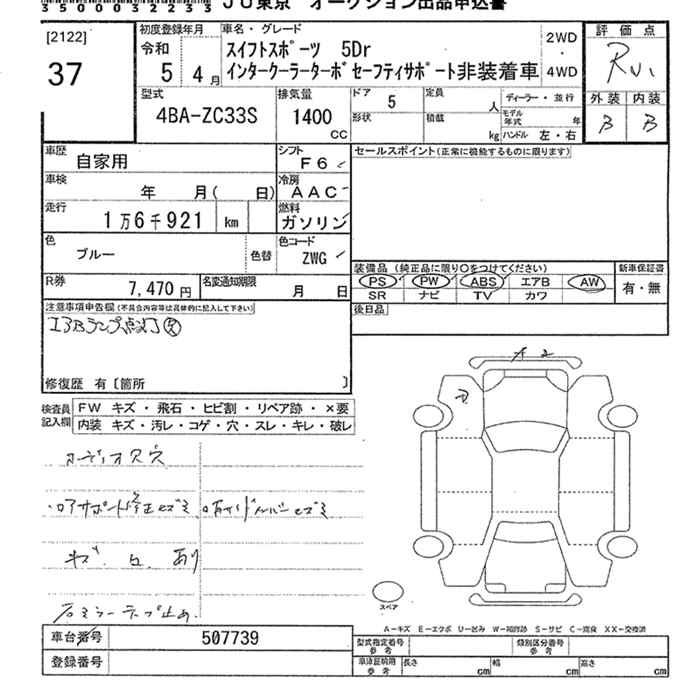 3 5 0 0 0 3 2 2 3 3 JU東京 オークション出品申込書
[2122]
37
初度登録年月
令和
5 4月
車名・グレード
スイフトスポーツ 5Dr
インタークーラーターボセーフティサポート非装着車
2WD
・
4WD
評価点
R
外装 内装
B B
型式
4BA-ZC33S
排気量
1400
CC
ドア 5
形状
定員 人
積載 kg
ディーラー・並行
モデル年式 年
ハンドル 左・右
車歴 自家用
シフト F6
セールスポイント(正常に機能するものに限ります)
車検 年 月( 日)
冷房 AAC
走行 1万6千921 km
燃料 ガソリン
色 ブルー 色替
色コード ZWG
装備品(純正品に限り○をつけてください)
PS PW ABS エアB AW
SR ナビ TV カワ
新車保証書
有・無
R券 7,470円
名変通知期限 月 日
後日品
注意事項申告欄(不具合内容等は具体的に記入して下さい)
エアBランプ点灯
修復歴 有〔箇所 〕
検査員記入欄
FW キズ・飛石・ヒビ割・リペア跡・×要
内装 キズ・汚レ・コゲ・穴・スレ・キレ・破レ
A2
オーディオ穴
キズ、凹、あり
右ミラーテープ止め
スペア
A-キズ E-エクボ U-凹み W-補修跡 S-サビ C-腐食 XX-交換済
車台番号 507739
登録番号
型式指定番号 参考
類別区分番号 参考
車庫証明用 参考 長さ cm 幅 cm 高さ cm